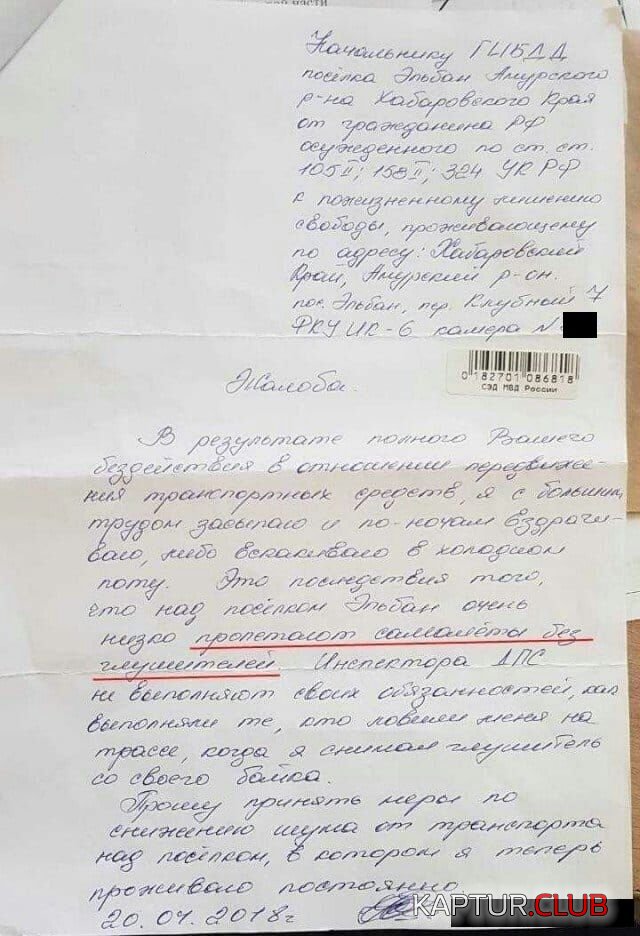 Начальнику ГИБДД
посёлка Эльбан Амурского
р-на Хабаровского Края
от гражданина РФ
осужденного по ст. ст.
105 II; 158 II; 324 УК РФ
к пожизненному лишению
свободы, проживающему
по адресу: Хабаровский
Край, Амурский р-он.
пос. Эльбан, пер. Клубный 7
ФКУ ИК-6 камера №
0 182701 086818
СЭД МВД России
Жалоба.
В результате полного Вашего
бездействия в отношении передвиже-
ния транспортных средств, я с большим
трудом засыпаю и по-ночам вздраги-
ваю, либо вскакиваю в холодном
поту. Это последствия того,
что над посёлком Эльбан очень
низко пролетают самолёты без
глушителей. Инспектора ДПС
не выполняют своих обязанностей, как
выполняли те, кто ловили меня на
трассе, когда я снимал глушитель
со своего байка.
Прошу принять меры по
снижению шума от транспорта
над посёлком, в котором я теперь
проживаю постоянно
20.04.2018г
KAPTUR.CLUB